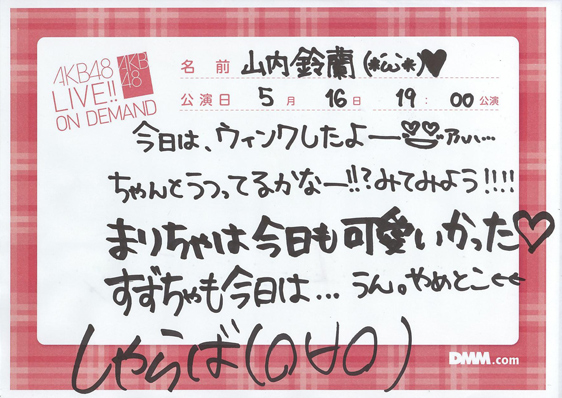 AKB48
LIVE!!
ON DEMAND
AKB
48
名前 山内鈴蘭(*´ω`*)♥
公演日 5月 16日 19:00公演
今日は、ウィンクしたよー アハハ…
ちゃんとうつってるかなー!!?みてみよう!!!!
まりちゃは今日も可愛いかった♡
すずちゃも今日は… うん。やめとこ←←
しゃらば(0∀0)
DMM.com